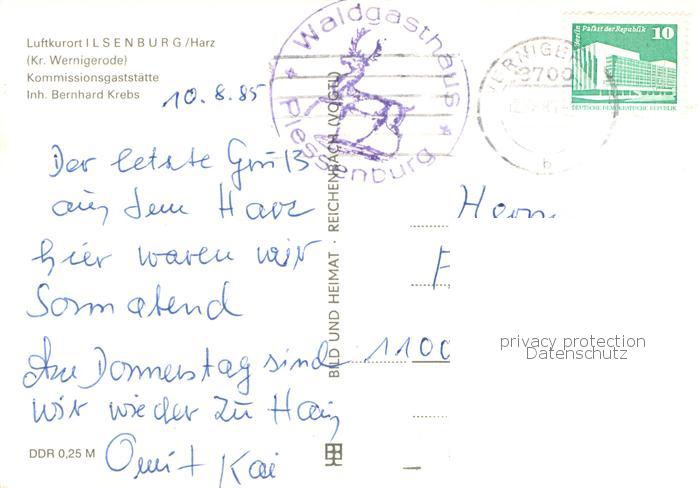 Luftkurort ILSENBURG/Harz
(Kr. Wernigerode)
Kommissionsgaststätte
Inh. Bernhard Krebs
10.8.85
Waldgasthaus
Plessenburg
3700
b
Berlin Palast der Republik
10
DEUTSCHE DEMOKRATISCHE REPUBLIK
Der letzte Gruß
aus dem Harz
hier waren wir
Sonnabend
Am Donnerstag sind
wir wieder zu Haus
Omi + Kai
BILD UND HEIMAT · REICHENBACH (VOGTL)
Herrn
F
1100
privacy protection
Datenschutz
DDR 0,25 M